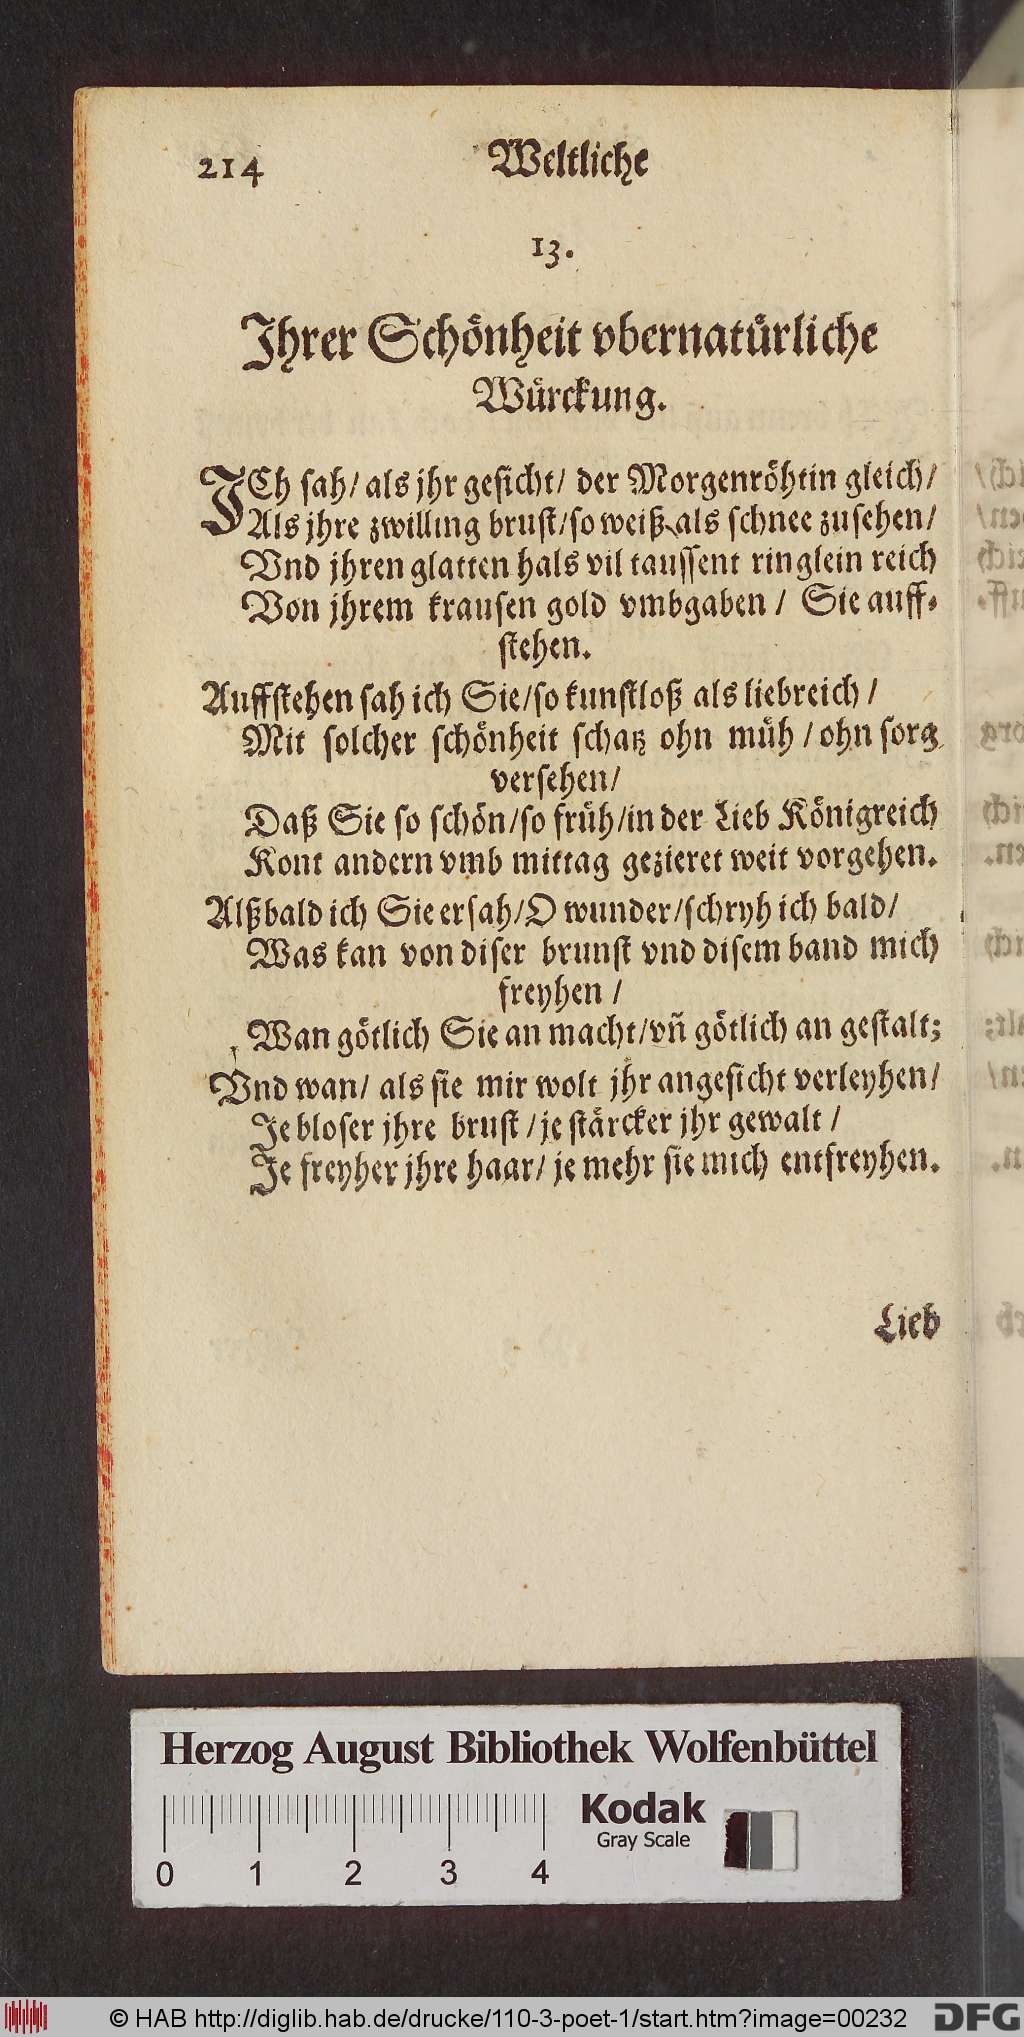 214 Weltliche
13.
Ihrer Schönheit vbernatürliche
Würckung.
ICh sah/ als jhr gesicht/ der Morgenröhtin gleich/
Als jhre zwilling brust/so weiß als schnee zusehen/
Vnd jhren glatten hals vil taussent ringlein reich
Von jhrem krausen gold vmbgaben / Sie auff-
stehen.
Auffstehen sah ich Sie/so kunstloß als liebreich /
Mit solcher schönheit schatz ohn müh / ohn sorg
versehen/
Daß Sie so schön/so früh/in der Lieb Königreich
Kont andern vmb mittag gezieret weit vorgehen.
Alßbald ich Sie ersah/O wunder/schryh ich bald/
Was kan von diser brunst vnd disem band mich
freyhen /
Wan götlich Sie an macht/vñ götlich an gestalt;
Vnd wan/ als sie mir wolt jhr angesicht verleyhen/
Je bloser jhre brust / je stärcker jhr gewalt /
Je freyher jhre haar/ je mehr sie mich entfreyhen.
Lieb
Herzog August Bibliothek Wolfenbüttel
Kodak
Gray Scale
0 1 2 3 4
© HAB http://diglib.hab.de/drucke/110-3-poet-1/start.htm?image=00232 DFG